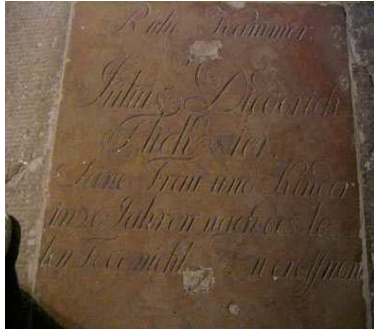 Ruhe Kammer
Julius Diederich
Seine Frau und Kinder
in 30 Jahren nach des le
ten Tode nicht u eröffnen